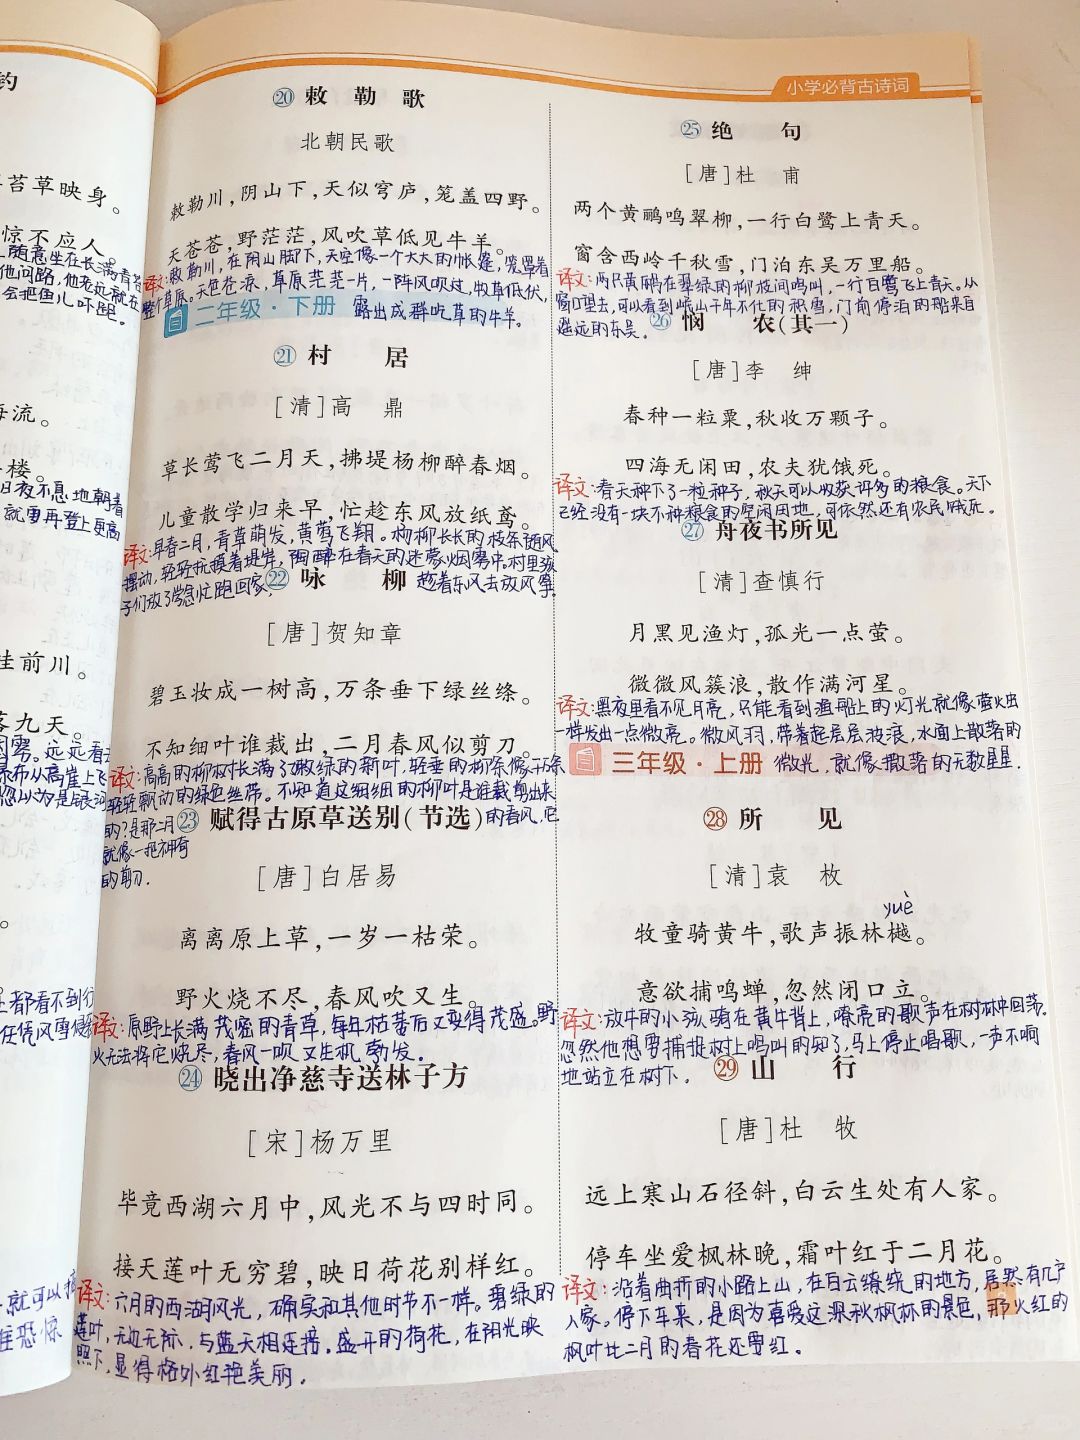 钓
苔草映身。
惊不应人。
随意坐在长满青苔
他问路,他老远就在
会把鱼儿吓跑.
海流。
楼。
日夜不息地朝着
就要再登上更高
挂前川。
落九天。
远远看去
瀑布从高崖上飞
都看不到行
任凭风雪
就可以摘
恐惊
小学必背古诗词
⑳敕勒歌
北朝民歌
敕勒川,阴山下,天似穹庐,笼盖四野。
天苍苍,野茫茫,风吹草低见牛羊。
译文:敕勒川,在阴山脚下,天空像一个大大的帐篷,笼罩着
整个草原。天色苍凉,草原茫茫一片,一阵风吹过,牧草低伏,
露出成群吃草的牛羊。
二年级·下册
㉑村 居
[清]高 鼎
草长莺飞二月天,拂堤杨柳醉春烟。
儿童散学归来早,忙趁东风放纸鸢。
译文:早春二月,青草萌发,黄莺飞翔。杨柳长长的枝条随风
摆动,轻轻抚摸着堤岸,陶醉在春天的迷蒙烟雾中。村里孩
子们放了学急忙跑回家,趁着东风去放风筝
㉒咏 柳
[唐]贺知章
碧玉妆成一树高,万条垂下绿丝绦。
不知细叶谁裁出,二月春风似剪刀。
译文:高高的柳树长满了嫩绿的新叶,轻垂的柳条像千万条
轻轻飘动的绿色丝带。不知道这细细的柳叶是谁裁剪出来
的?是那二月的春风,它
就像一把神奇
的剪刀.
㉓赋得古原草送别(节选)
[唐]白居易
离离原上草,一岁一枯荣。
野火烧不尽,春风吹又生。
译文:原野上长满茂密的青草,每年枯萎后又变得茂盛。野
火无法将它烧尽,春风一吹又生机勃发.
㉔晓出净慈寺送林子方
[宋]杨万里
毕竟西湖六月中,风光不与四时同。
接天莲叶无穷碧,映日荷花别样红。
译文:六月的西湖风光,确实和其他时节不一样。碧绿的
莲叶,无边无际,与蓝天相连接.盛开的荷花,在阳光映
照下,显得格外红艳美丽.
㉕绝 句
[唐]杜 甫
两个黄鹂鸣翠柳,一行白鹭上青天。
窗含西岭千秋雪,门泊东吴万里船。
译文:两只黄鹂在翠绿的柳枝间鸣叫,一行白鹭飞上青天。从
窗口望去,可以看到岷山千年不化的积雪,门前停泊的船来自
遥远的东吴.
㉖悯 农(其一)
[唐]李 绅
春种一粒粟,秋收万颗子。
四海无闲田,农夫犹饿死。
译文:春天种下了一粒种子,秋天可以收获许多的粮食。天下
已经没有一块不种粮食的空闲田地,可依然还有农民饿死.
㉗舟夜书所见
[清]查慎行
月黑见渔灯,孤光一点萤。
微微风簇浪,散作满河星。
译文:黑夜里看不见月亮,只能看到渔船上的灯光就像萤火虫
一样发出一点微亮。微风习,带着起层层波浪,水面上散落的
微光,就像撒落的无数星星.
三年级·上册
㉘所 见
[清]袁 枚
yuè
牧童骑黄牛,歌声振林樾。
意欲捕鸣蝉,忽然闭口立。
译文:放牛的小孩骑在黄牛背上,嘹亮的歌声在树林中回荡.
忽然他想要捕捉树上鸣叫的知了,马上停止唱歌,一声不响
地站立在树下.
㉙山 行
[唐]杜 牧
远上寒山石径斜,白云生处有人家。
停车坐爱枫林晚,霜叶红于二月花。
译文:沿着曲折的小路上山,在白云缭绕的地方,居然有几户
人家。停下车来,是因为喜爱这深秋枫林的景色,那火红的
枫叶比二月的春花还要红.